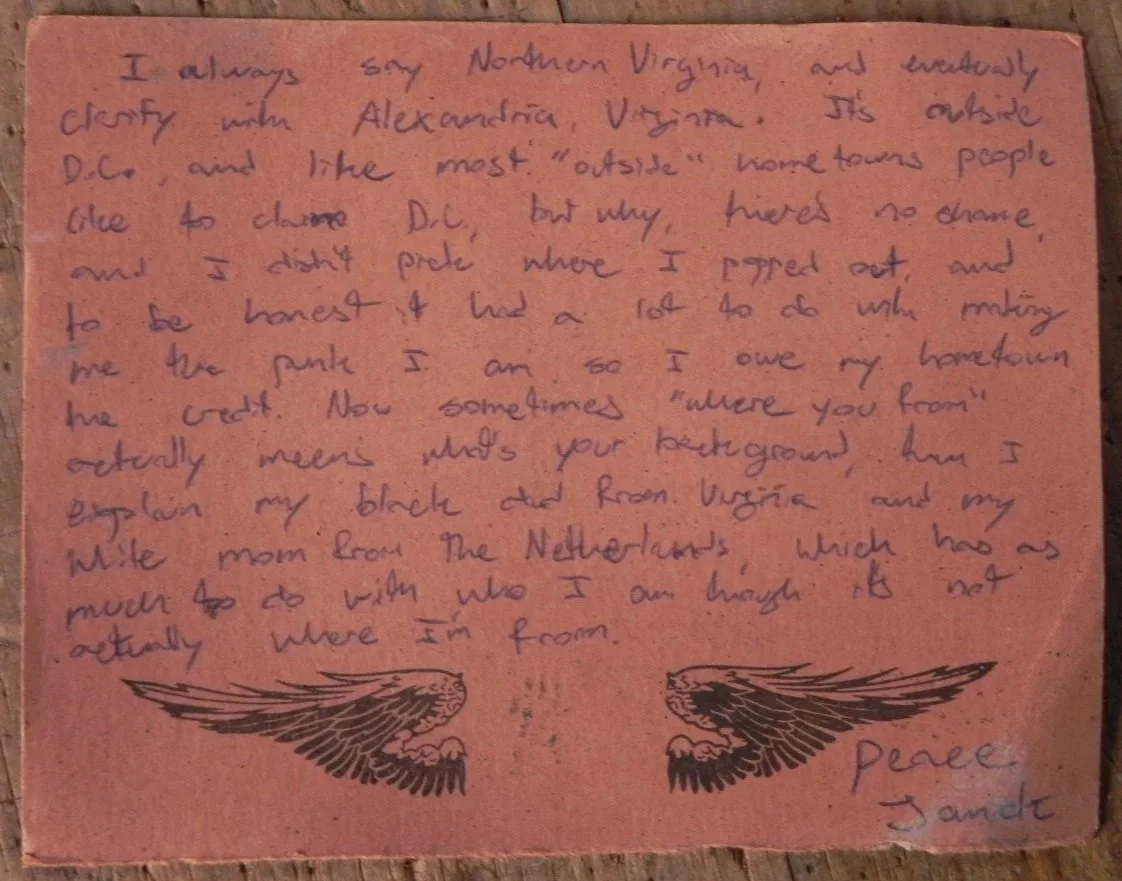 I always say Northern Virginia, and eventually
clarify with Alexandria, Virginia. It's outside
D.C., and like most "outside" hometowns people
like to claim D.C., but why, there's no shame,
and I didn't pick where I popped out, and
to be honest it had a lot to do with making
me the punk I am so I owe my hometown
the credit. Now sometimes "where you from"
actually means what's your background, then I
explain my black dad from Virginia and my
white mom from The Netherlands, which has as
much to do with who I am though it's not
actually where I'm from.
Peace